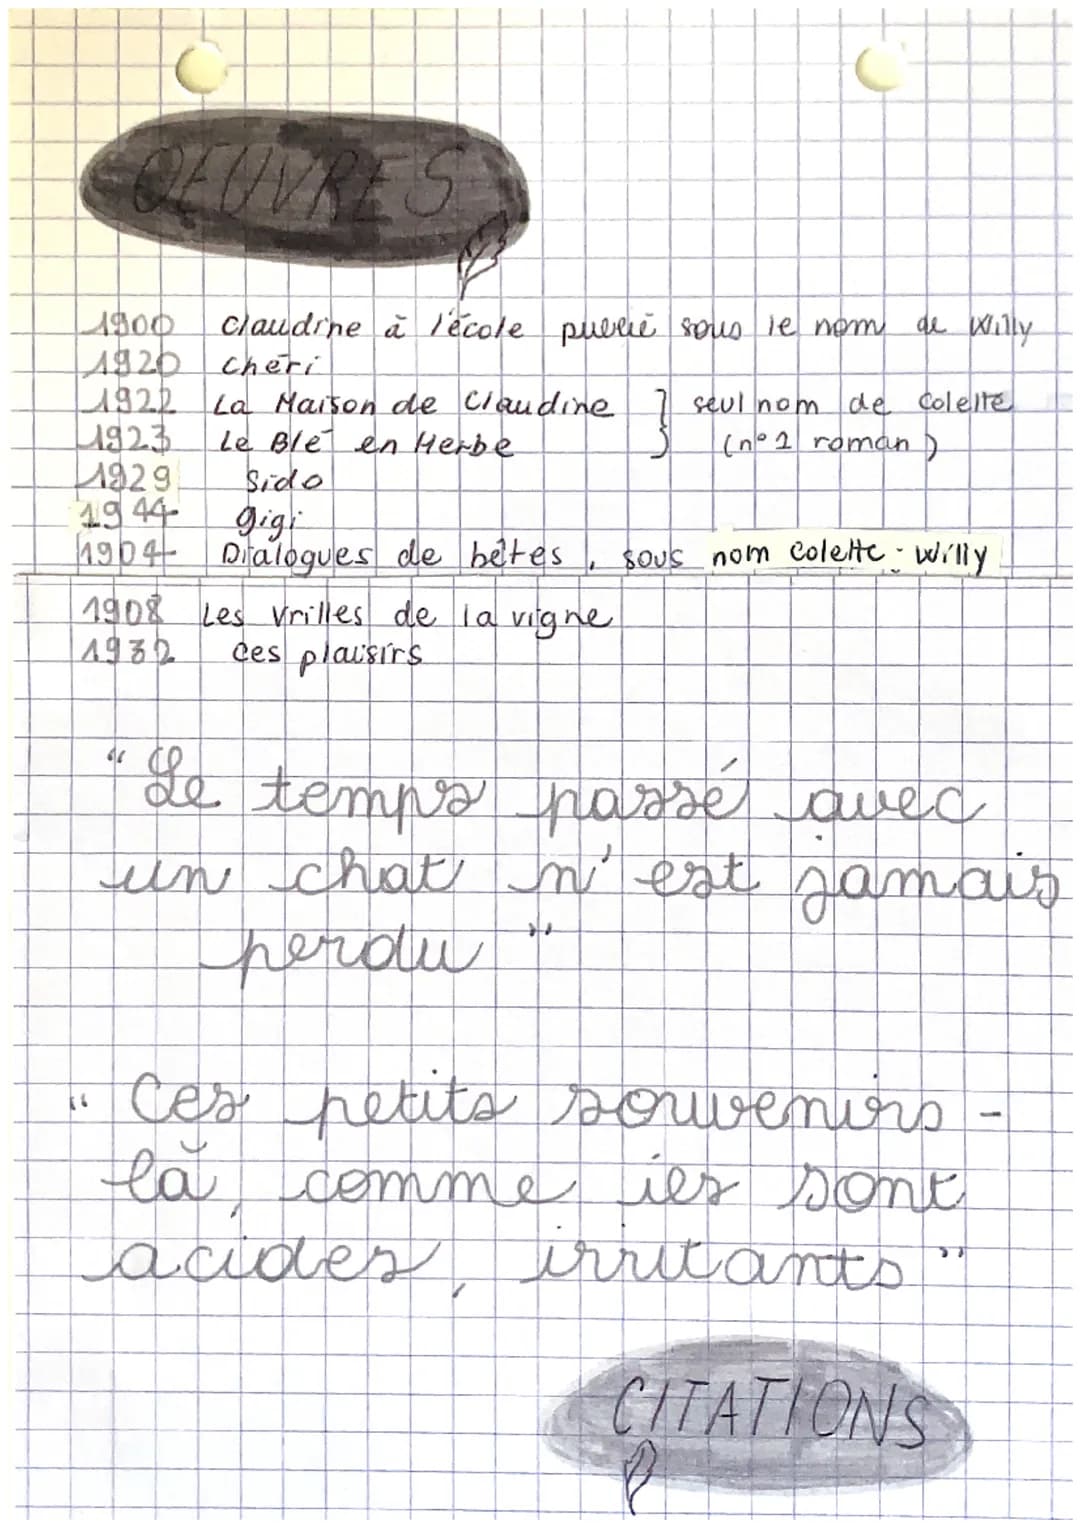 OEUVRES
1900 Claudine à l'école publié sous le nom de Willy
1920 Chéri
1922 La Maison de Claudine } seul nom de Colette
1923 Le Blé en Herbe (n°1 roman)
1929 Sido
1944 gigi
1904 Dialogues de bêtes, sous nom Colette-Willy
1908 Les Vrilles de la vigne
1932 ces plaisirs
"Le temps passé avec
un chat n'est jamais
perdu"
"Ces petits souvenirs-
là, comme ies sont
acides, irritants"
CITATIONS